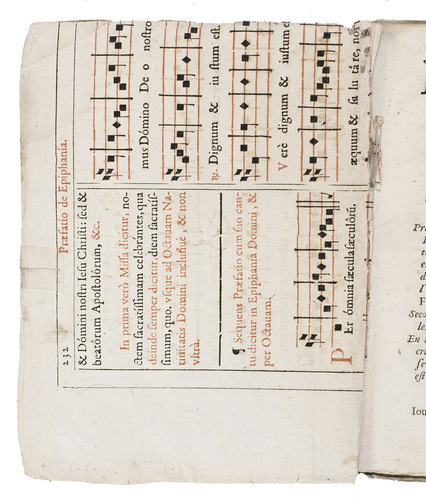 232
Præfatio de Epiphania.
& Dómini nostri Iesu Christi: sed &
beatórum Apostolórum, &c.
In prima verò Missa dicitur, no-
ctem sacratíssimam celebrantes, qua
deinde semper dicitur, diem sacratíss-
simum, quo, vsque ad Octauam Na-
tiuitatis Domini inclusiuè, & non
vltra.
¶ Sequens Præfatio cum suo can-
tu dicitur in Epiphania Domini, &
per Octauam.
PEr ómnia sæcula sæculórũ.
mus Dómino De o nostro
℟. Dignum & iu stum est.
Verè dignum & iustum est
æquum & sa lu táre, nos
Pr
F
Seco
le
En
cri
se
est
Iou